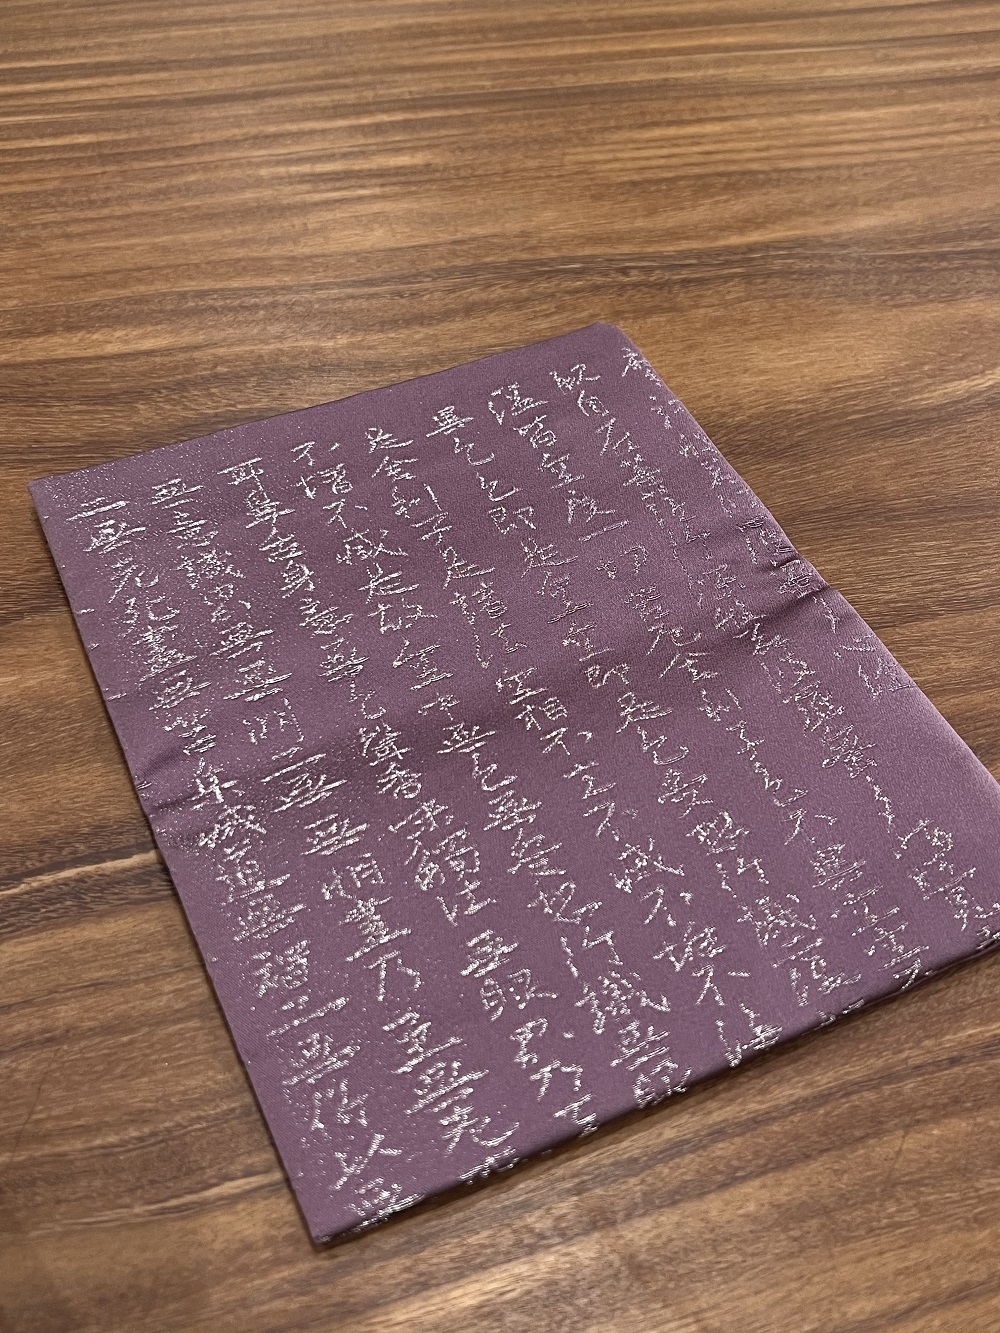 摩訶般若波羅蜜多心経
観自在菩薩行深般若波羅蜜多時照見
蘊皆空度一切苦厄舎利子色不異空空不
異色色即是空空即是色受想行識亦復
是舎利子是諸法空相不生不滅不垢不浄
不増不減是故空中無色無受想行識無眼
耳鼻舌身意無色聲香味觸法無眼界乃至
無意識界無無明亦無無明盡乃至無老死
亦無老死盡無苦集滅道無智亦無所得以無